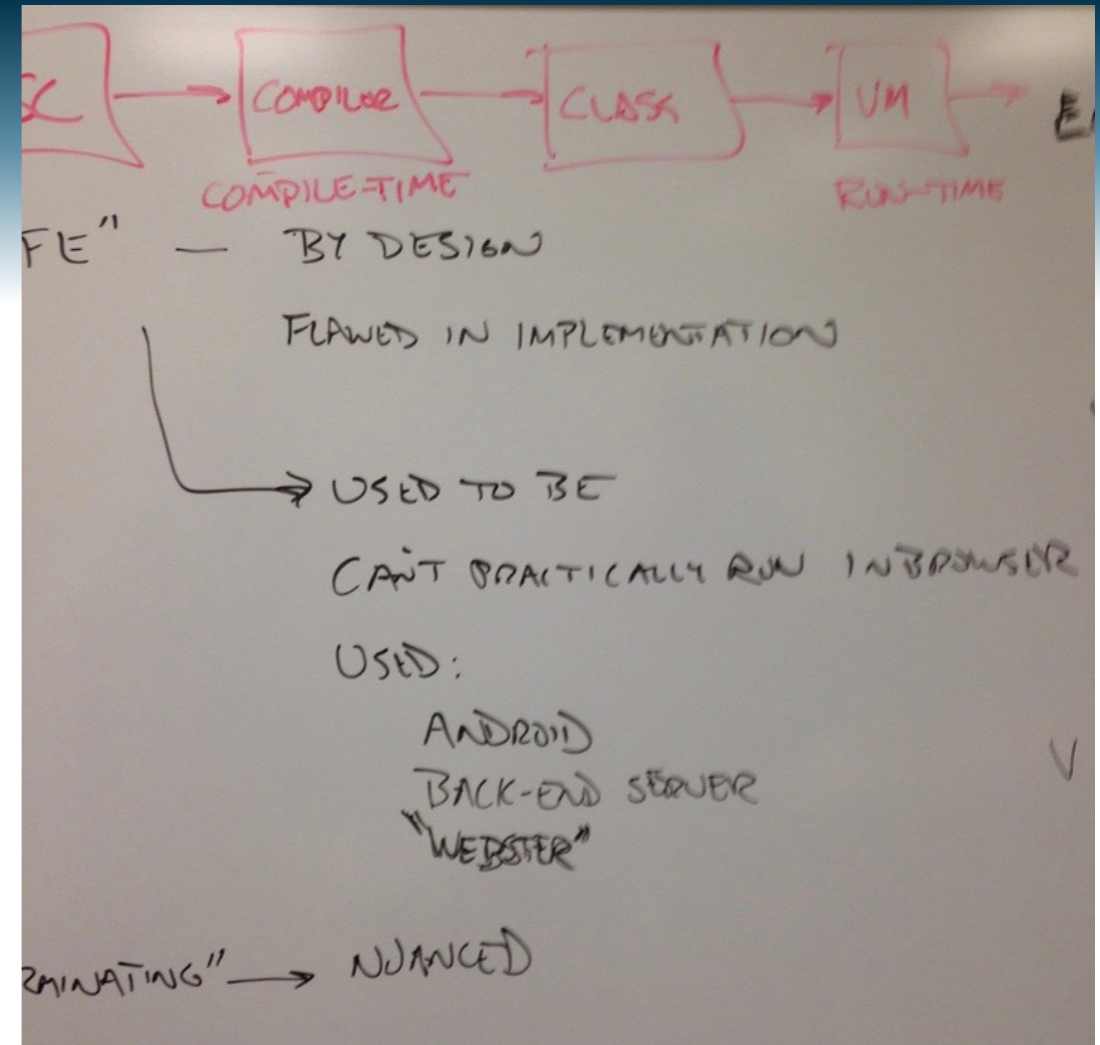 SC COMPILER CLASS VM
COMPILE-TIME RUN-TIME
FE" — BY DESIGN
FLAWED IN IMPLEMENTATION
USED TO BE
CAN'T PRACTICALLY RUN IN BROWSER
USED:
ANDROID
BACK-END SERVER
"WEBSTER"
RMINATING" → NUANCED